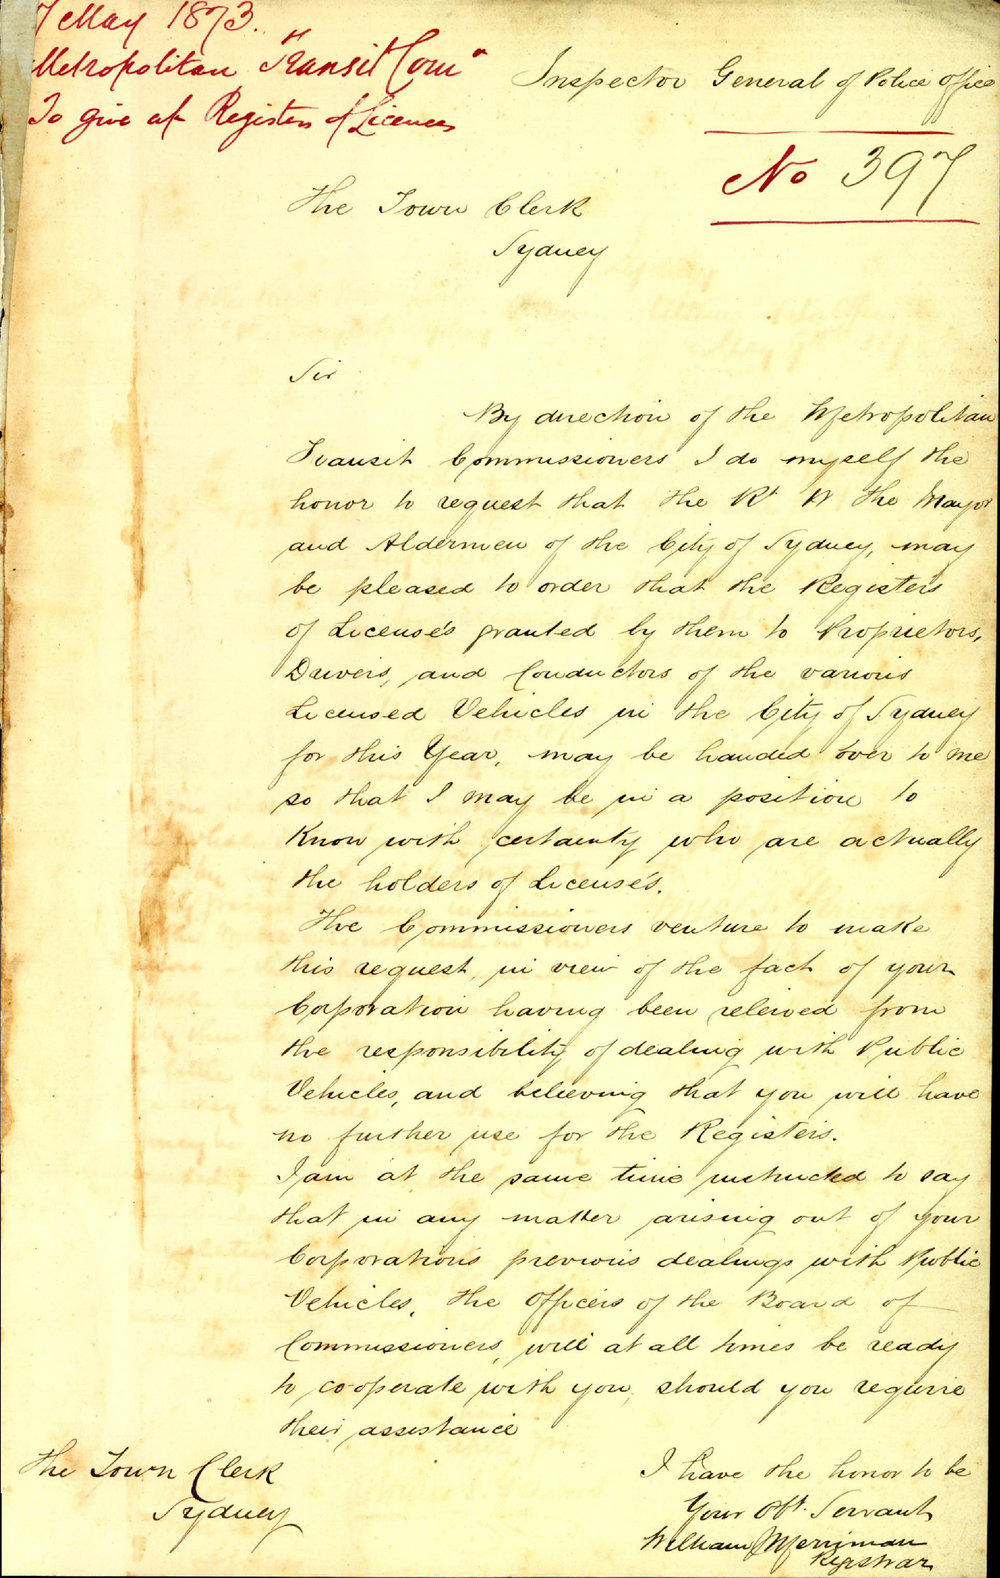 7 May 1873.
Metropolitan Transit Com"
To give up Registers of Licences
Inspector General of Police Office
No 397
The Town Clerk
Sydney
Sir
By direction of the Metropolitan
Transit Commissioners I do myself the
honor to request that the Rt W the Mayor
and Aldermen of the City of Sydney, may
be pleased to order that the Registers
of License's granted by them to Proprietors,
Drivers, and Conductors of the various
Licensed Vehicles in the City of Sydney
for this Year, may be handed over to me
so that I may be in a position to
Know with certainty who are actually
the holders of License's.
The Commissioners venture to make
this request, in view of the fact of your
Corporation having been releived from
the responsibility of dealing with Public
Vehicles, and believing that you will have
no further use for the Registers.
I am at the same time instructed to say
that in any matter arising out of your
Corporations previous dealings with Public
Vehicles, the Officers of the Board of
Commissioners, will at all times be ready
to cooperate with you, should you require
their assistance
I have the honor to be
Your Obt. Servant
William Merriman
Registrar
The Town Clerk
Sydney